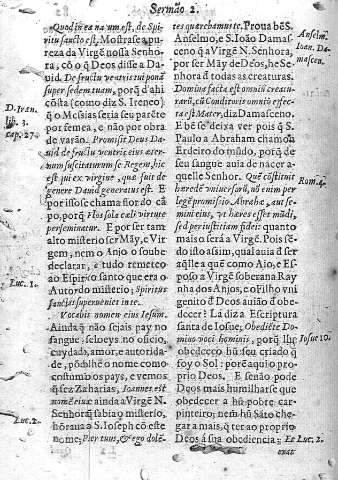 Sermão 2.
Quod in ea natum est, de Spi-
ritu sancto est. Mostrase a pu-
reza da Virgẽ nossa Senho-
ra, cõ o q̃ Deos disse a Da-
uid. De fructu ventris tui ponã
super sedem tuam, porq̃ d'ahi
cõsta (como diz S. Ireneo)
q̃ o Messias seria seu parẽte
por femea, e não por obra
de varão. Promisit Deus Da-
uid de fructu ventris eius æter-
num suscitaturum se Regem, hic
est qui ex virgine, quæ fuit de
genere Dauid generatus est. E
por isso se chama flor do cã
po, porq̃ Flos sola cæli virtute
perseminatur. E por ser tam
alto misterio ser Mãy, e Vir-
gem, nem o Anjo o soube
declarar, e tudo remeteo
ao Espirito santo que era o
Autor do misterio; Spiritus
sanctus superueniet in te.
Vocabis nomen eius Iesum.
Ainda q̃ não sejais pay no
sangue, seloeys no officio,
cuydado, amor, e autorida-
de, põdelhe o nome como
costumão os pays, e vemos
q̃ fez Zacharias, Ioannes est
nomẽ eius ainda a Virgẽ N.
Senhora q̃ sabia o misterio,
hõraua a S. Ioseph cõ este
nome; Pater tuus, & ego dolẽ-
D. Iran.
lib. 3.
cap. 27.
Luc. 1.
Luc. 2.
tes quærebamus te. Proua bẽ S.
Anselmo, e S. Ioão Damas-
ceno q̃ a Virgẽ N. Senhora,
por ser Mãy de Deos, he Se-
nhora d todas as creaturas.
Domina facta est omniũ creatu-
rarũ, cũ Conditoris omniũ effe-
cta est Mater, diz Damasceno.
E bẽ se deixa ver pois q̃ S.
Paulo a Abraham chamou
Erdeiro do mũdo, porq̃ de
seu sangue auia de nacer a-
quelle Senhor. Que cõstituit
hæredẽ vniuersorũ, nõ enim per
legẽ promissio Abrahæ, aut se-
mini eius, vt hæres esset mũdi,
sed per iustitiam fidei: quanto
mais o será a Virgẽ. Pois sẽ-
do isso assim, qual auia d ser
aq̃lle a que como Aio, e Es-
poso a Virgẽ soberana Ray
nha dos Anjos, e o Filho vni
genito d Deos auião d obe-
decer? Lá diz a Escriptura
santa de Iosue, Obediẽte Do-
mino voci hominis, porq̃ lhe
obedeceo hũ seu criado q̃
foy o Sol: porẽ aqui o pro-
prio Deos. E senão pode
Deos mais humilharse que
obedecer a hũ pobre car-
pinteiro; nem hũ Sãto che-
gar a mais, q̃ ter ao proprio
Deos á sua obediencia; Et
Anselm.
Ioan. Da-
mascen.
Rom. 4.
Iosue 10.
Luc. 2.